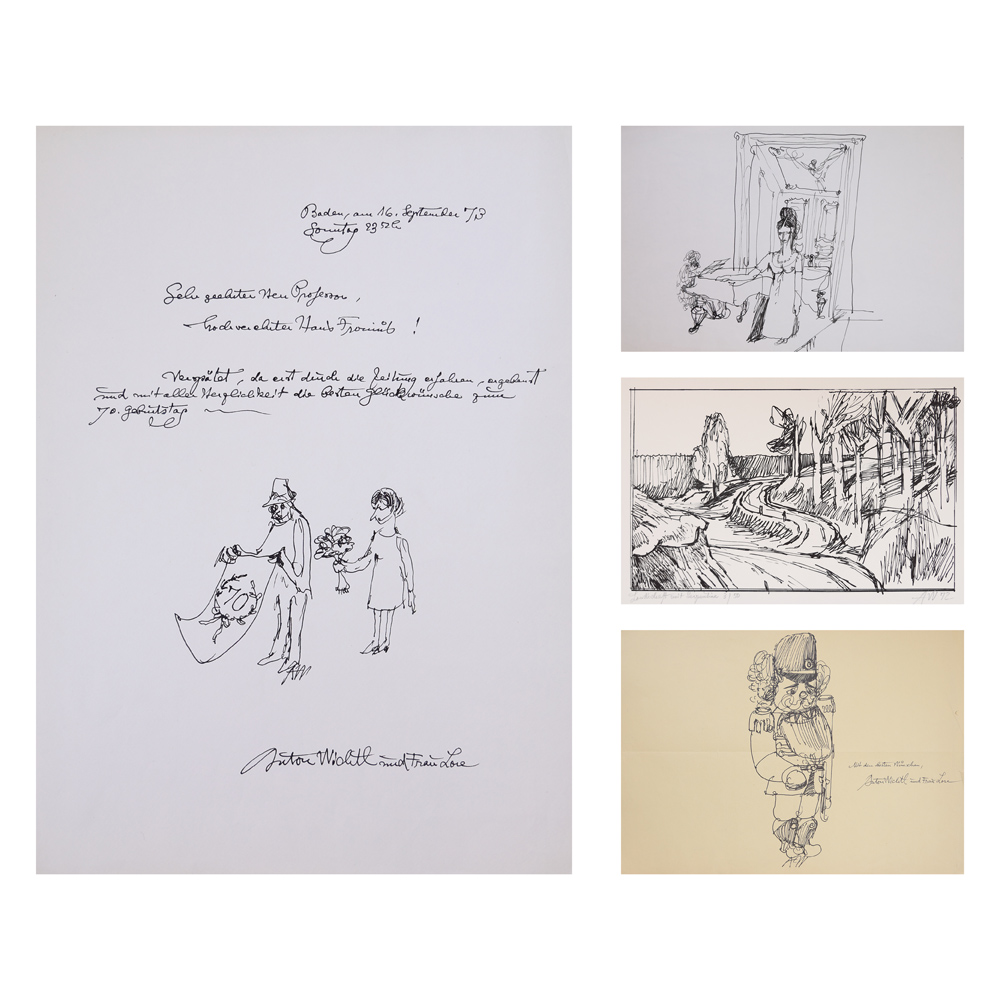 Baden, am 16. September 73
Sonntag 23 52h
Sehr geehrter Herr Professor,
hochverehrter Hans Fronius !
Verspätet, da erst durch die Zeitung erfahren, ergebenst
und mit aller Herzlichkeit die besten Glückwünsche zum
70. Geburtstag
70
AW
Anton Wichtl und Frau Lore
Landschaft mit
AW 72
Mit den besten Wünschen,
Anton Wichtl und Frau Lore